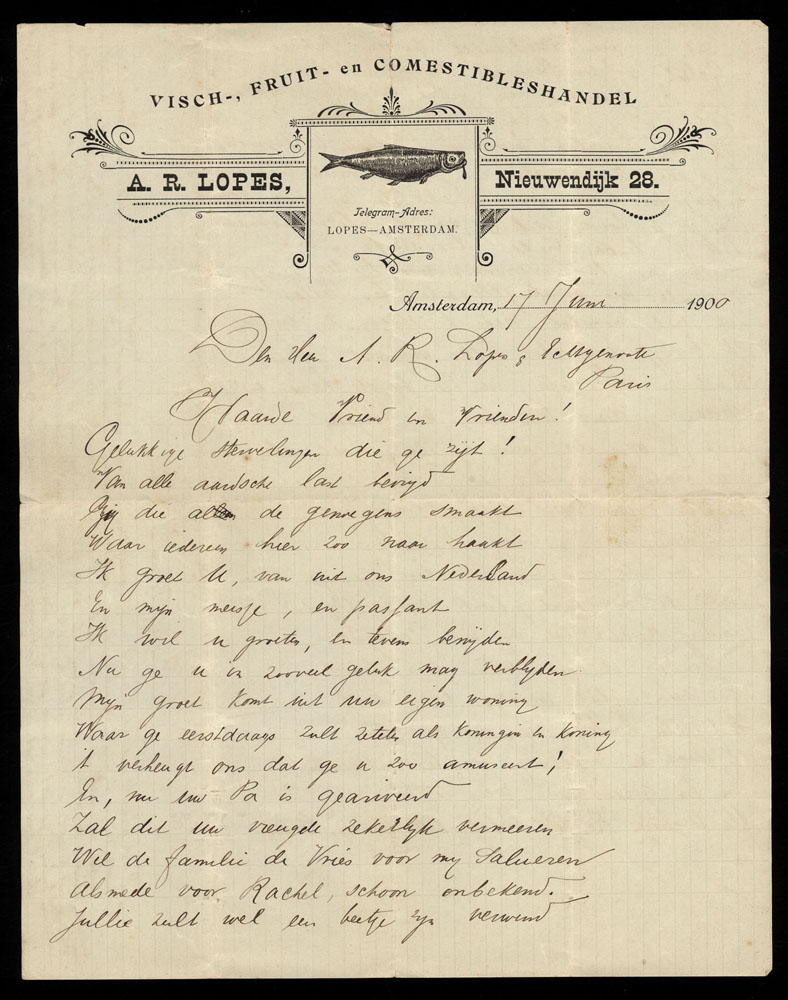 VISCH-, FRUIT- en COMESTIBLESHANDEL
A. R. LOPES,
Nieuwendijk 28.
Telegram-Adres:
LOPES—AMSTERDAM.
Amsterdam, 17 Juni 1900
Den Heer A. R. Lopes & Echtgenoote
Paris
Waarde Vriend en Vriendin!
Gelukkige stervelingen die ge zijt!
Van alle aardsche last bevrijd
Gij die de genoegens smaakt
Waar iedereen hier zoo naar haakt
Ik groet U, van uit ons Nederland
En mijn meisje, en passant
Ik wil u groeten, en tevens benijden
Nu ge u in zooveel geluk mag verblijden
Mijn groet komt uit uw eigen woning
Waar ge eerstdaags zult zetelen als Koningin en Koning
't verheugt ons dat ge u zoo amuseert!
En, nu uw Pa is gearriveerd
Zal dit uw vreugde zekerlijk vermeeren
Wil de familie de Vries voor mij Salueren
Alsmede voor Rachel, schoon onbekend.
Jullie zult wel een beetje zijn verwend